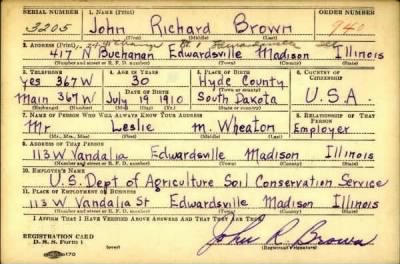 SERIAL NUMBER 1. NAME (Print) ORDER NUMBER
3205 John Richard Brown 940
(First) (Middle) (Last)
2. ADDRESS (Print)
417 N Buchanan Edwardsville Madison Illinois
(Number and street or R. F. D. number) (Town) (County) (State)
3. TELEPHONE 4. AGE IN YEARS 5. PLACE OF BIRTH 6. COUNTRY OF CITIZENSHIP
yes 367W 30 Hyde County
DATE OF BIRTH
Main 367W July 19 1910 South Dakota U.S.A.
(Exchange) (Number) (Mo.) (Day) (Yr.) (State or country)
7. NAME OF PERSON WHO WILL ALWAYS KNOW YOUR ADDRESS 8. RELATIONSHIP OF THAT PERSON
Mr Leslie M. Wheaton Employer
(Mr., Mrs., Miss) (First) (Middle) (Last)
9. ADDRESS OF THAT PERSON
113 W Vandalia Edwardsville Madison Illinois
(Number and street or R. F. D. number) (Town) (County) (State)
10. EMPLOYER'S NAME
U.S. Dept of Agriculture Soil Conservation Service
11. PLACE OF EMPLOYMENT OR BUSINESS
113 W Vandalia St Edwardsville Madison Illinois
(Number and street or R. F. D. number) (Town) (County) (State)
I AFFIRM THAT I HAVE VERIFIED ABOVE ANSWERS AND THAT THEY ARE TRUE.
REGISTRATION CARD John R. Brown
D. S. S. Form 1 (over) (Registrant's signature)